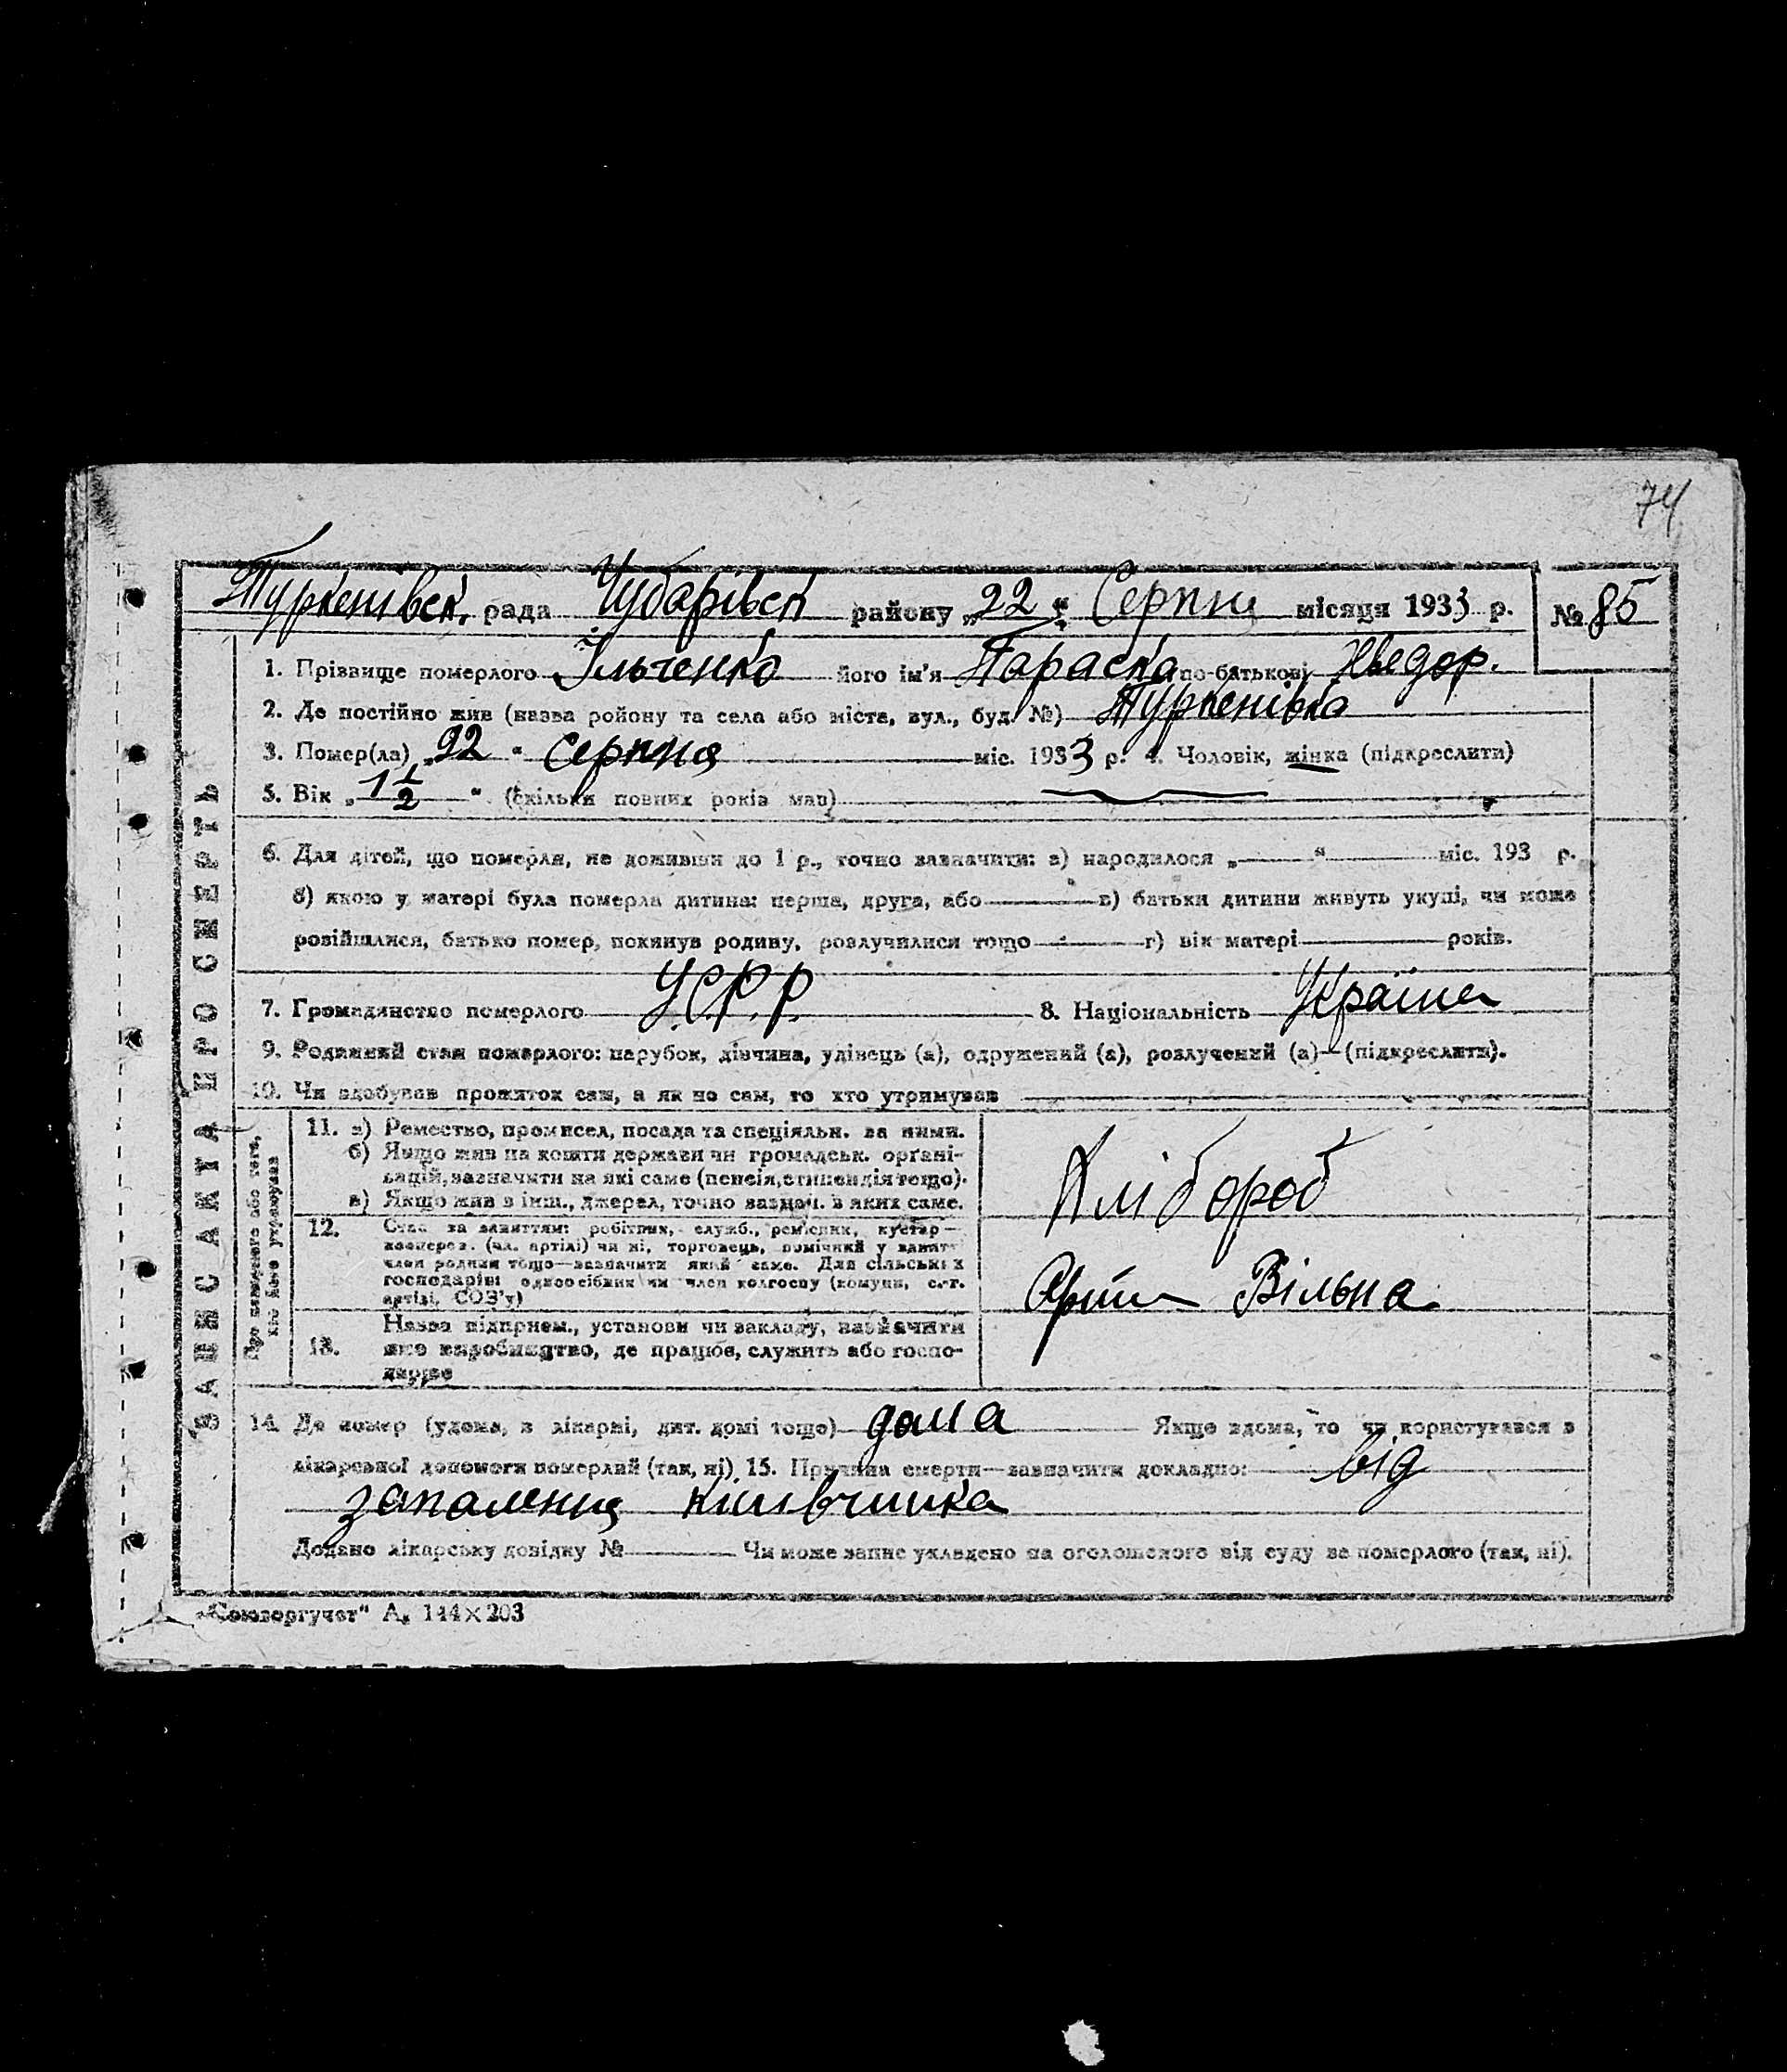 74
Туркенівск. рада Чубарівск району „22“ Серпня місяця 1933 р. № 85
1. Прізвище померлого Ільченко його ім'я Параска по-батькові Хведор.
2. Де постійно жив (назва ройону та села або міста, вул., буд. №) Туркенівка
3. Помер(ла) „22“ серпня міс. 1933 р. 4. Чоловік, жінка (підкреслити)
5. Вік „1 1/2“ (скільки повних років мав)
6. Для дітей, що померли, не доживши до 1 р., точно зазначити: а) народилося „ “ міс. 193 р.
б) якою у матері була померла дитина: перша, друга, або в) батьки дитини живуть укупі, чи може
розійшлися, батько помер, покинув родину, розлучилися тощо г) вік матері років.
7. Громадянство померлого УСРР 8. Національність Україн
9. Родинний стан померлого: парубок, дівчина, удівець (а), одружений (а), розлучений (а)—(підкреслити).
10. Чи здобував прожиток сам, а як не сам, то хто утримував
ЗАПИС АКТА ПРО СМЕРТЬ
Про померлого або того,
хто його утримував
11. а) Ремество, промисел, посада та спеціяльн. за ними.
б) Якщо жив на кошти держави чи громадськ. органі-
зацій, зазначити на які саме (пенсія, стипендія тощо).
в) Якщо жив з інш., джерел, точно зазнач. з яких саме.
Хлібороб
12. Стан за заняттям: робітник, служб., ремісник, кустар—
кооперов. (чл. артілі) чи ні, торговець, помічний у занятт
член родини тощо—зазначити який саме. Для сільських
господарів: одноосібник чи член колгоспу (комуни, с.-г.
артілі, СОЗ'у)
Артіл Вільна
13. Назва підприєм., установи чи закладу, зазначити
яке виробництво, де працює, служить або госпо-
дарює
14. Де помер (удома, в лікарні, дит. домі тощо) дома Якщо вдома, то чи користувався з
лікарської допомоги померлий (так, ні). 15. Причина смерти—зазначити докладно: від
запалення кишвчника
Додано лікарську довідку № Чи може запис укладено на оголошеного від суду за померлого (так, ні).
„Союзоргучет" А, 144×203